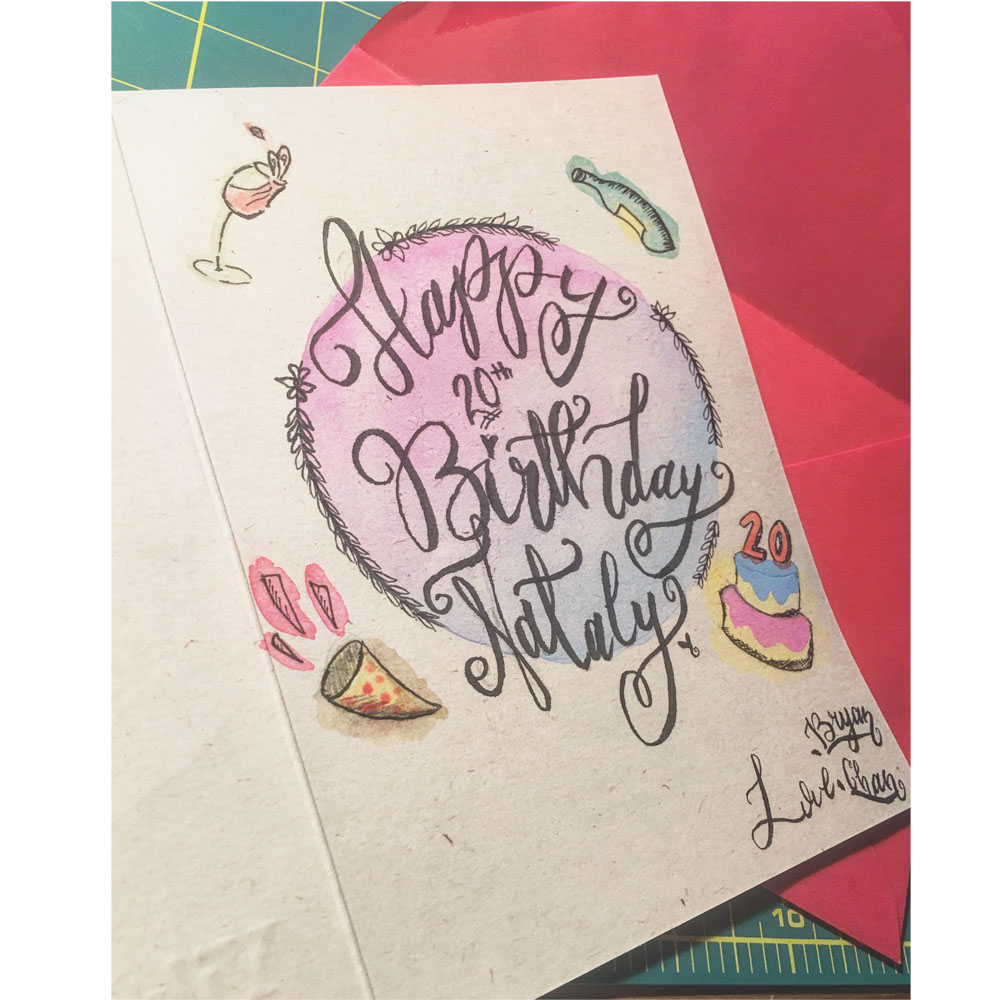 Happy
20th
Birthday
Nataly
20
Bryan
Love Chan
10